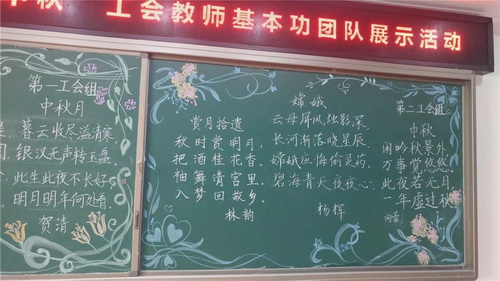 中秋 工会教师基本功团队展示活动
第一工会组
中秋月
暮云收尽溢清寒
银汉无声转玉盘
此生此夜不长好
明月明年何处看
贺清
赏月拾遗
秋时赏明月，
把酒桂花香。
袖舞清宫里，
入梦回故乡。
林韵
嫦娥
云母屏风烛影深，
长河渐落晓星辰，
嫦娥应悔偷灵药，
碧海青天夜夜心。
杨辉
第二工会组
中秋
闲吟秋景外
万事觉悠悠
此夜若无月
一年虚过秋